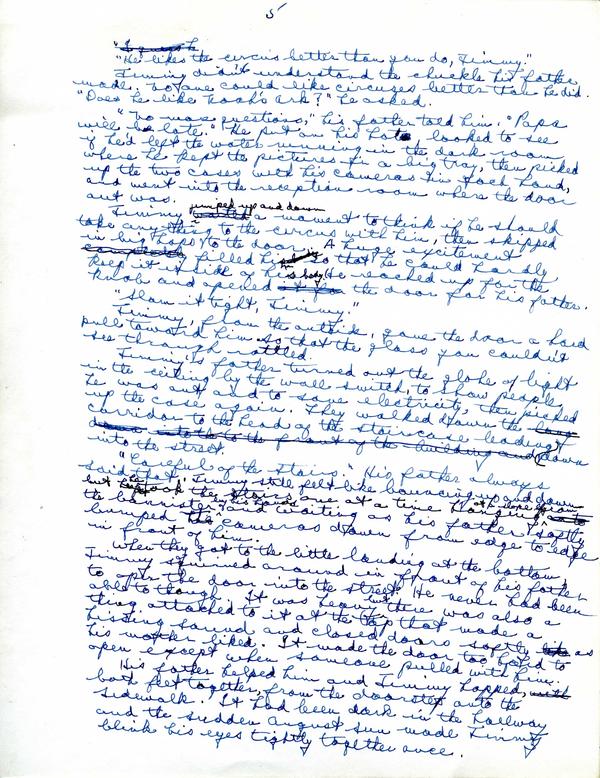 5
"I guess he
"He likes the circus better than you do, Jimmy."
Jimmy didn't understand the chuckle his father
made. No one could like circuses better than he did.
"Does he like Noah's Ark?" he asked.
"No more questions," his father told him. "Papa
will be late." He put on his hat, looked to see
if he'd left the water running in the dark room
where he kept the pictures in a big tray, then picked
up the two cases with his cameras in each hand,
and went into the reception room where the door
out was.
jumped up and down
Jimmy waited a moment to think if he should
take anything to the circus with him, then skipped
in big hops to the door. A huge excitement
completely filled him so that he could hardly
keep it inside of his body. He reached up for the
knob and opened it for the door for his father.
"Slam it tight, Jimmy."
Jimmy, from the outside, gave the door a hard
pull toward him so that the glass you couldn't
see through rattled.
Jimmy's father turned out the globe of light
in the ceiling by the wall switch, to show people
he was out and to save electricity, then picked
up the case again. They walked down the long
corridor to the head of the staircase leading
down into the front of the building and down
into the street.
"Careful of the stairs." His father always
said that. Jimmy still felt like bouncing up and down
but he took the stairs one at a time
the bannister and waiting as his father softly
bumped the cameras down from edge to edge
in front of him.
When they got to the little landing at the bottom
Jimmy squirmed around in front of his father
to open the door into the street. He never had been
able to though. It was heavy but there was also a
thing attached to it at the top that made a
hissing sound and closed doors softly like as
his mother liked. It made the door too hard to
open except when someone pulled with him.
His father helped him and Jimmy hopped, with
both feet together, from the doorstep onto the
sidewalk. It had been dark in the hallway
and the sudden August sun made Jimmy
blink his eyes tightly together once.